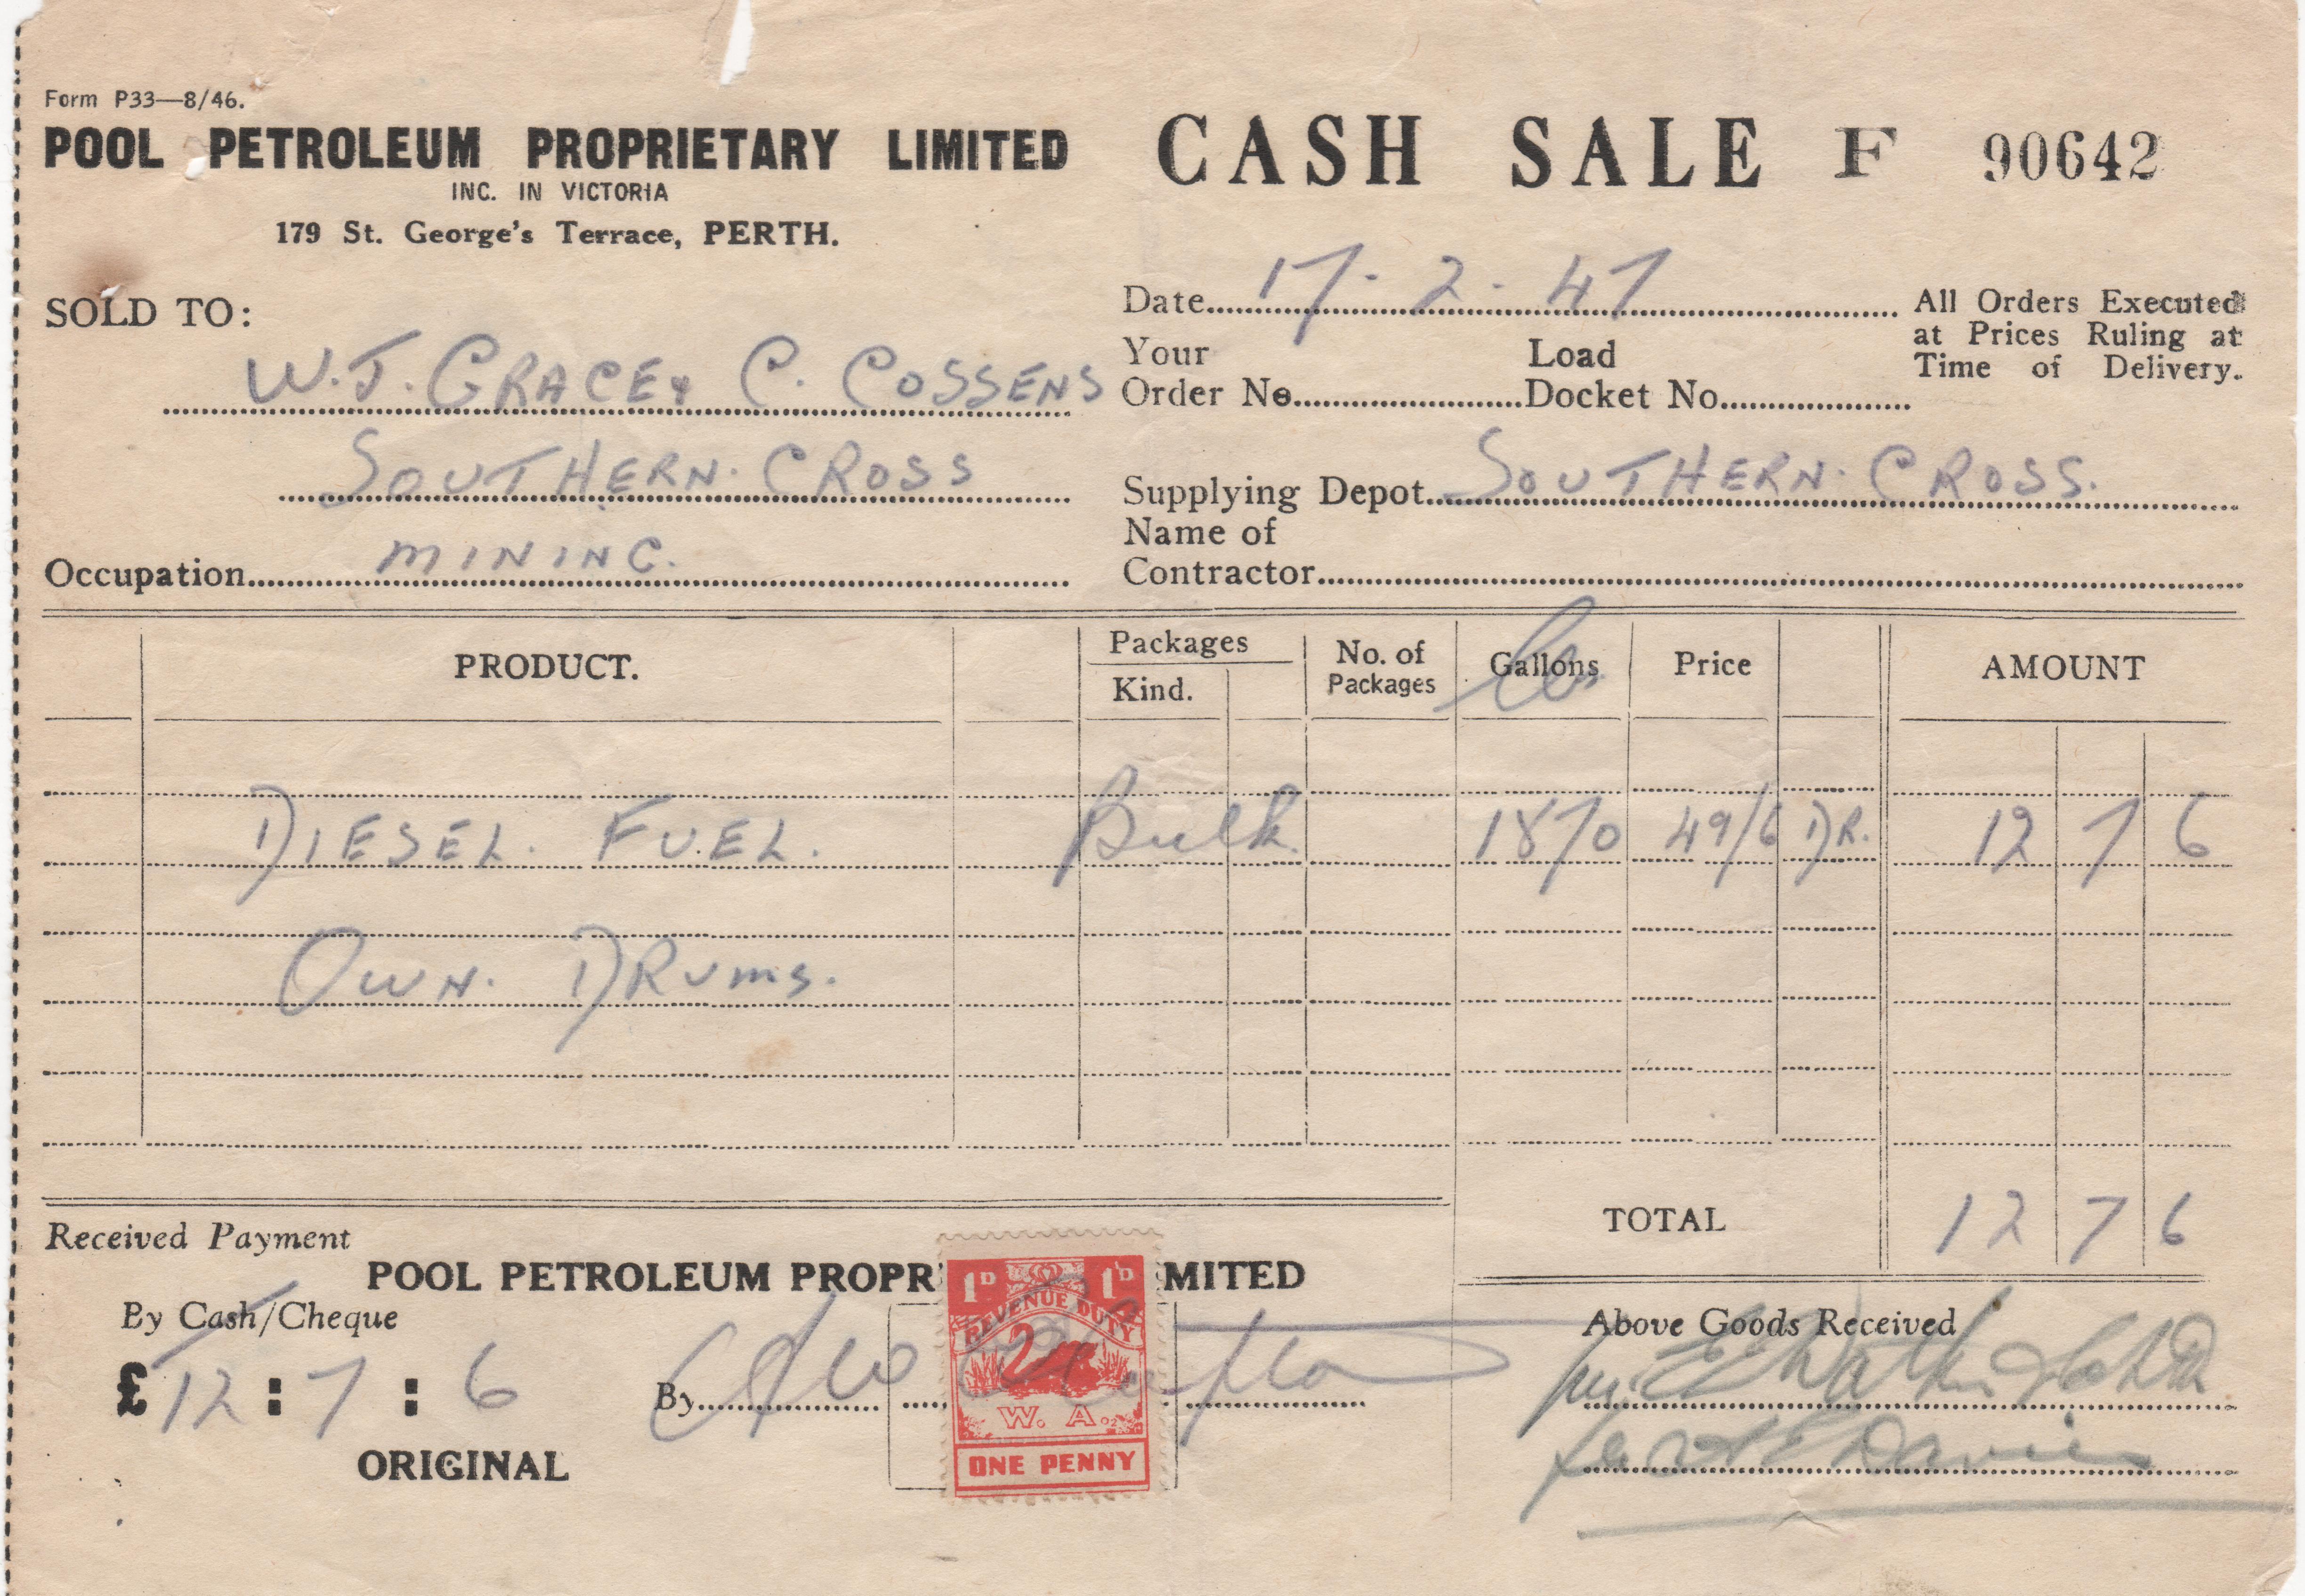 Form P33—8/46.
POOL PETROLEUM PROPRIETARY LIMITED
INC. IN VICTORIA
179 St. George's Terrace, PERTH.
CASH SALE F 90642
SOLD TO:
W.J. GRACE & C. COSSENS
SOUTHERN. CROSS
Occupation MINING.
Date 17.2.47
Your Order No
Load Docket No.
All Orders Executed
at Prices Ruling at
Time of Delivery.
Supplying Depot SOUTHERN. CROSS.
Name of
Contractor
PRODUCT. Packages Kind. No. of Packages Gallons Price AMOUNT
DIESEL. FUEL. Bulk 1870 49/6 DR. 12 7 6
OWN. DRUMS.
TOTAL 12 7 6
Received Payment
POOL PETROLEUM PROPR MITED
By Cash/Cheque
£12 : 7 : 6
By
ORIGINAL
1D 1D
REVENUE DUTY
W. A.
ONE PENNY
Above Goods Received
Davies